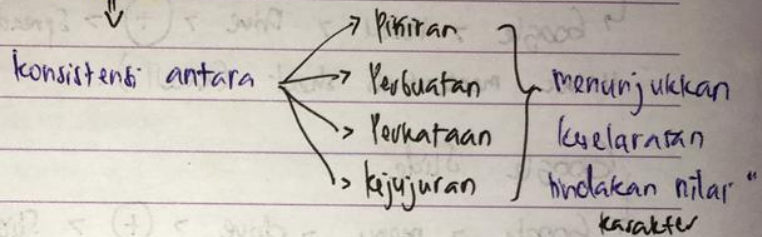 Pikiran
konsistensi antara
Perbuatan
Perkataan
kejujuran
menunjukkan
keselarasan
tindakan nilai"
karakter